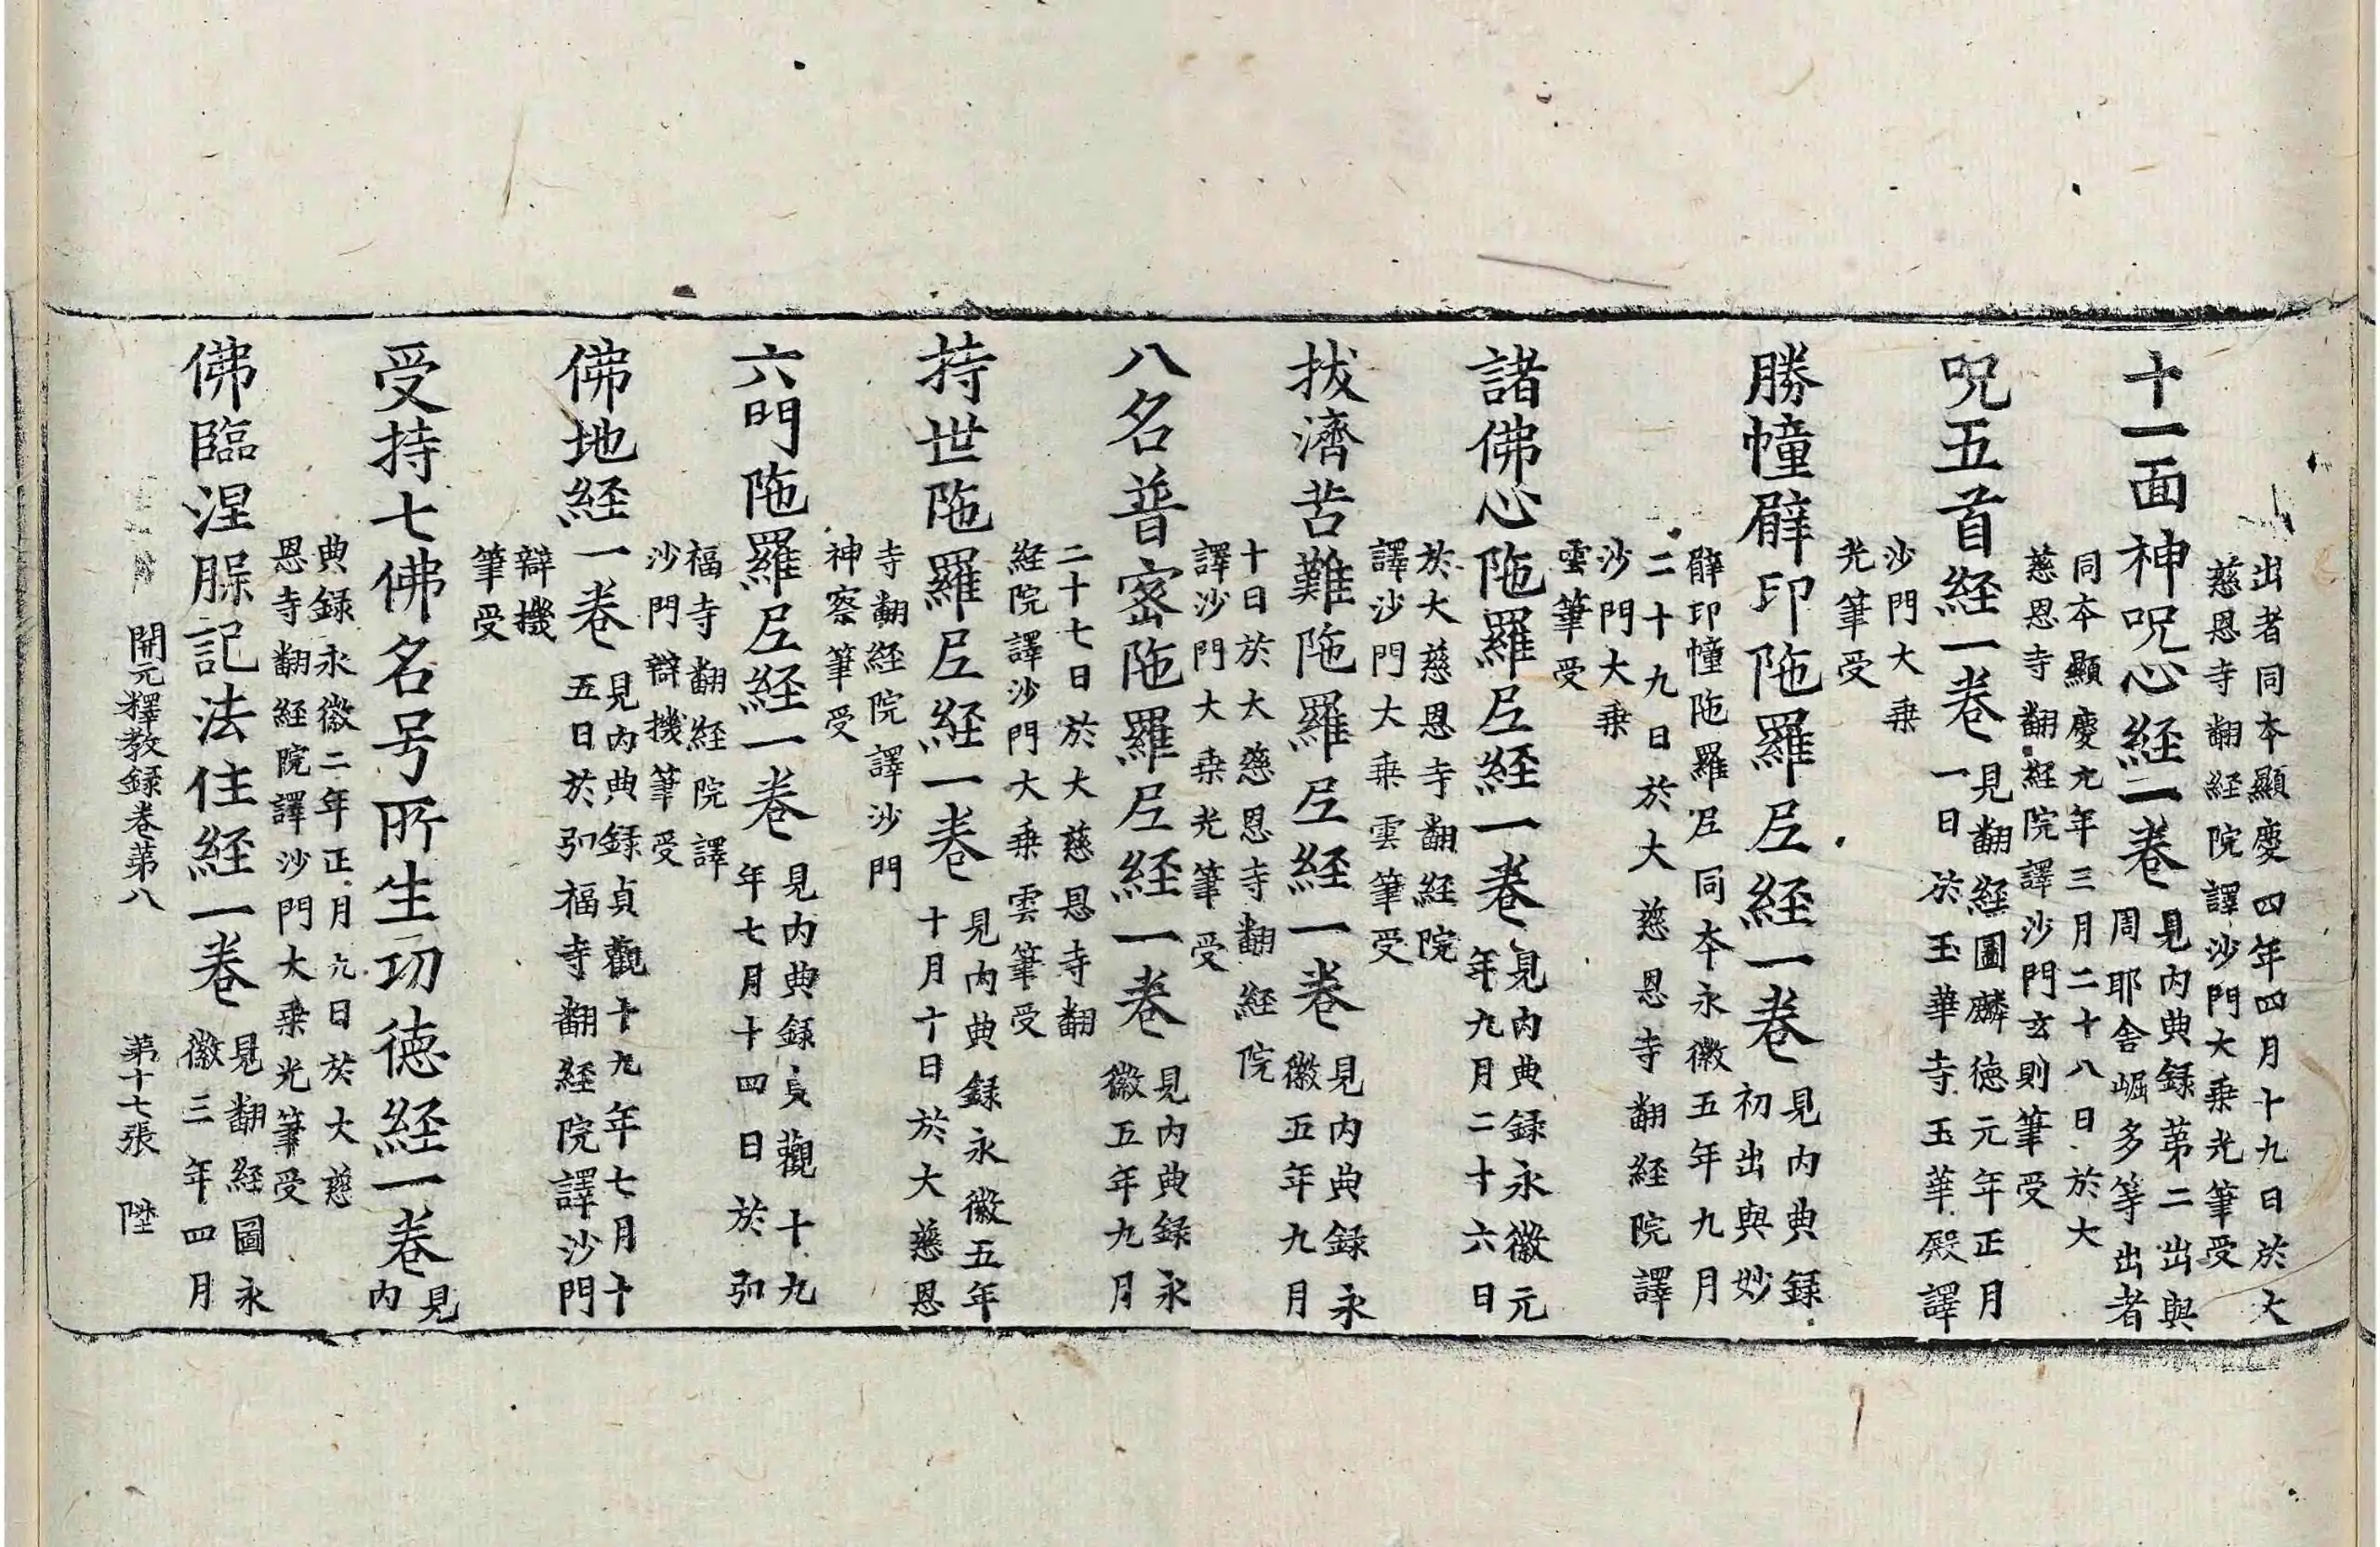 出者同本顯慶四年四月十九日於大
慈恩寺翻経院譯沙門大乗光筆受
十一面神呪心経一卷
見內典録第二出與
周耶舍崛多等出者
同本顯慶元年三月二十八日於大
慈恩寺翻経院譯沙門玄則筆受
呪五首経一卷
見翻経圖麟徳元年正月
一日於玉華寺玉華殿譯
沙門大乗
光筆受
勝幢臂印陁羅尼経一卷
見內典録
初出與妙
臂印幢陁羅尼同本永徽五年九月
二十九日於大慈恩寺翻経院譯
沙門大乗
雲筆受
諸佛心陁羅尼経一卷
見內典録永徽元
年九月二十六日
於大慈恩寺翻経院
譯沙門大乗雲筆受
拔濟苦難陁羅尼経一卷
見內典録永
徽五年九月
十日於大慈恩寺翻経院
譯沙門大乗光筆受
八名普宻陁羅尼経一卷
見內典録永
徽五年九月
二十七日於大慈恩寺翻
経院譯沙門大乗雲筆受
持世陁羅尼経一卷
見內典録永徽五年
十月十日於大慈恩
寺翻経院譯沙門
神察筆受
六門陁羅尼経一卷
見內典録貞觀十九
年七月十四日於弘
福寺翻経院譯
沙門辯機筆受
佛地経一卷
見內典録貞觀十九年七月十
五日於弘福寺翻経院譯沙門
辯機
筆受
受持七佛名号所生功徳経一卷
見
內
典録永徽二年正月九日於大慈
恩寺翻経院譯沙門大乗光筆受
佛臨涅脲記法住経一卷
見翻経圖永
徽三年四月
開元釋教録卷第八 第十七張 陞